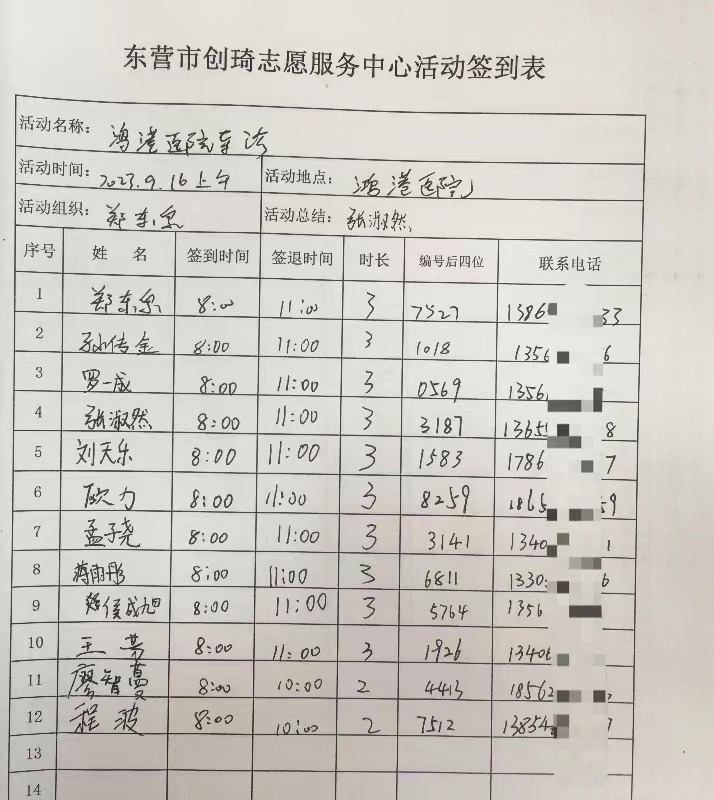 东营市创琦志愿服务中心活动签到表
活动名称： 鸿港医院车治
活动时间： 2023.9.16上午 活动地点： 鸿港医院
活动组织： 郑东 活动总结： 张淑然
序号 姓 名 签到时间 签退时间 时长 编号后四位 联系电话
1 郑东 8:00 11:00 3 7527 1386 33
2 孙传金 8:00 11:00 3 1018 1356 6
3 罗一成 8:00 11:00 3 0569 1356
4 张淑然 8:00 11:00 3 3187 1365 8
5 刘天乐 8:00 11:00 3 1583 1786 7
6 欧力 8:00 11:00 3 8259 1865 59
7 孟子尧 8:00 11:00 3 3141 1340 1
8 蒋雨彤 8:00 11:00 3 6811 1330 6
9 侯成旭 8:00 11:00 3 5764 1356
10 王 8:00 11:00 3 1926 1340
11 廖智蔓 8:00 10:00 2 4413 18562
12 程波 8:00 10:00 2 7512 13854
13
14